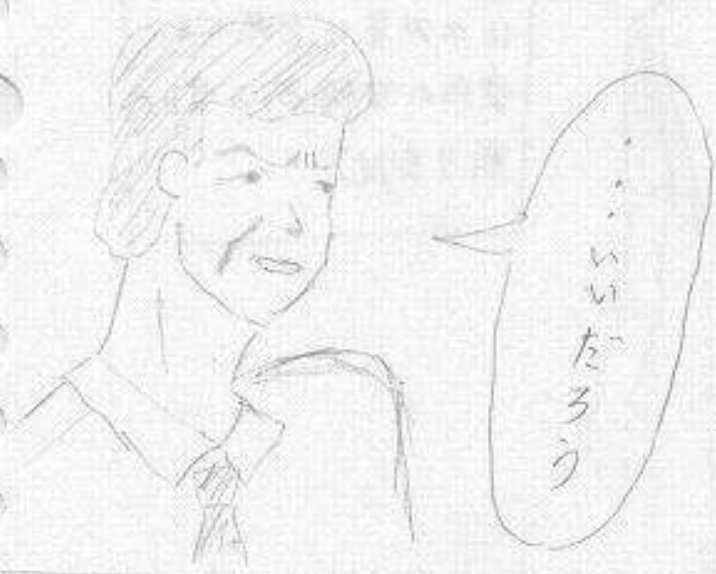 ・・・いいだろう